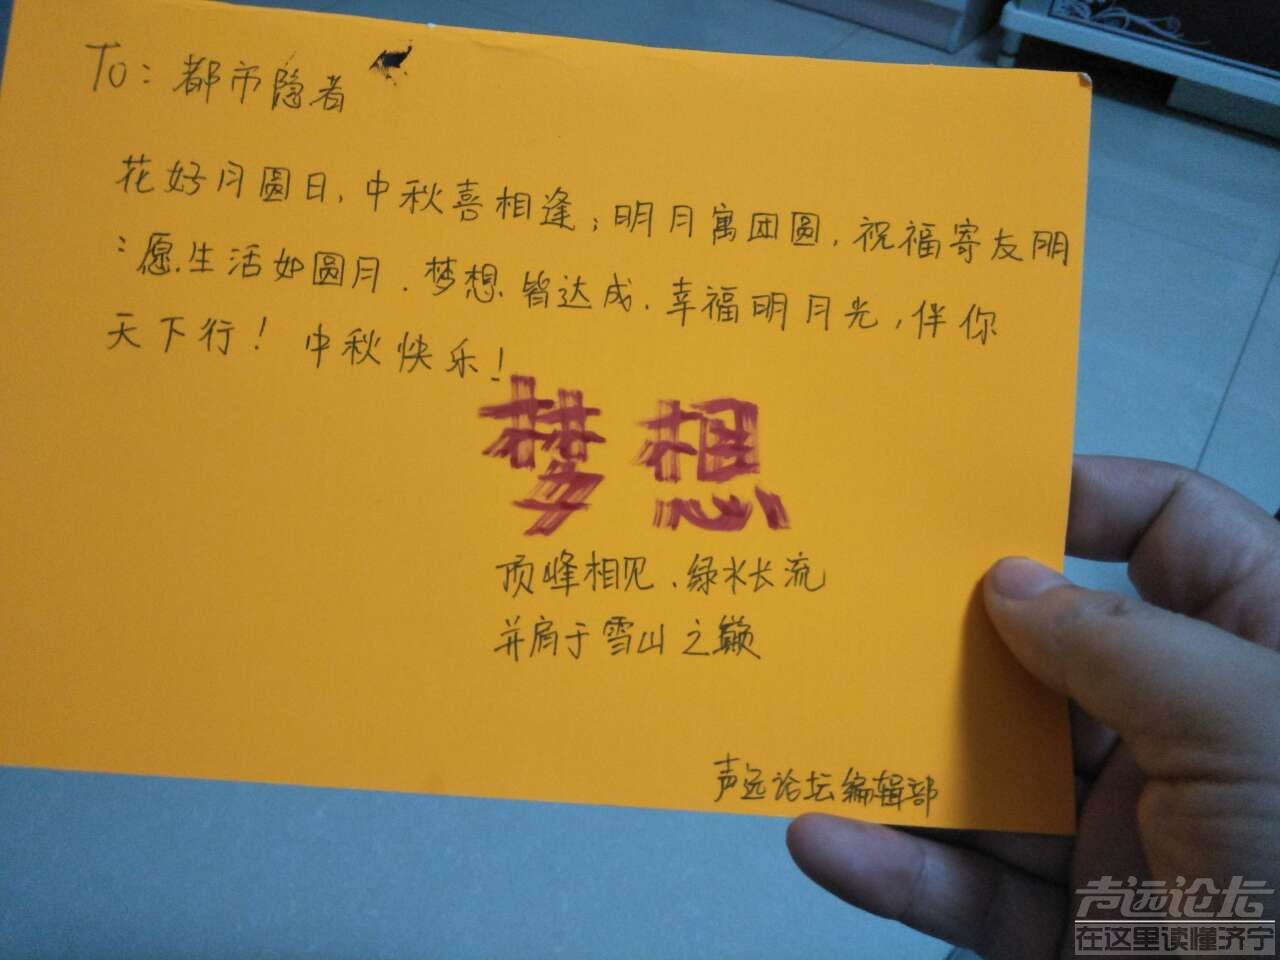 To: 都市隐者
花好月圆日,中秋喜相逢;明月寓团圆,祝福寄友朋
:愿生活如圆月.梦想皆达成.幸福明月光,伴你
天下行! 中秋快乐!
梦想
顶峰相见.绿水长流
并肩于雪山之巅
声远论坛编辑部
声远论坛
在这里读懂济宁